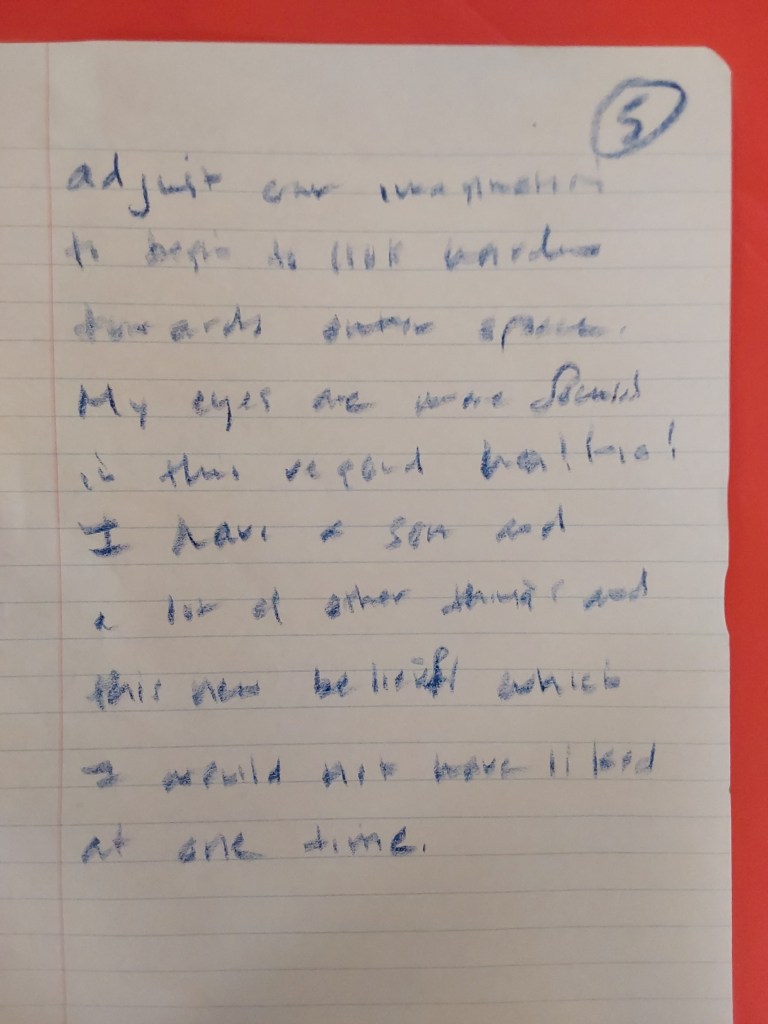 5
adjust our imagination
to begin to look harder
towards outer space.
My eyes are more focused
in this regard ha! ha!
I have a son and
a lot of other things and
this new belief which
I would not have liked
at one time.